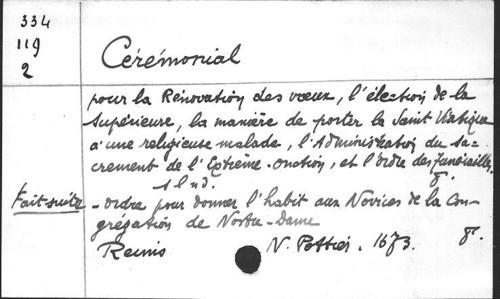 334
119
2
Cérémonial
pour la Rénovation des vœux, l'élection de la
Supérieure, la manière de porter le Saint Viatique
à une religieuse malade, l'Administration du Sa-
crement de l'Extrême-onction, et l'ordre des funérailles.
s l n d. 8°.
Fait suite - ordre pour donner l'habit aux Novices de la Con-
grégation de Nostre-Dame
Reims N. Pottier. 1673. 8°.